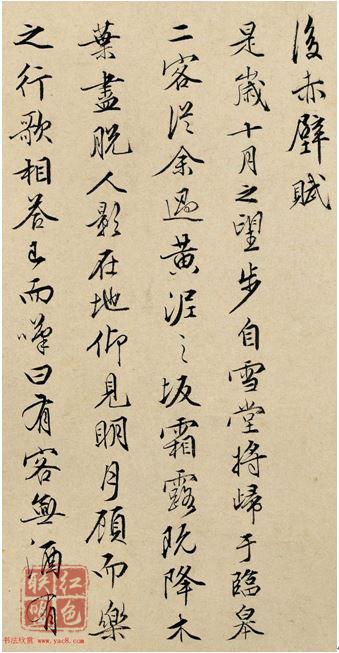 後赤壁賦
是歲十月之望步自雪堂將歸于臨皋
二客從余過黃泥之坂霜露既降木
葉盡脫人影在地仰見明月顧而樂
之行歌相荅已而嘆曰有客無酒有
紅色
联盟
书法欣赏 www.yac8.com